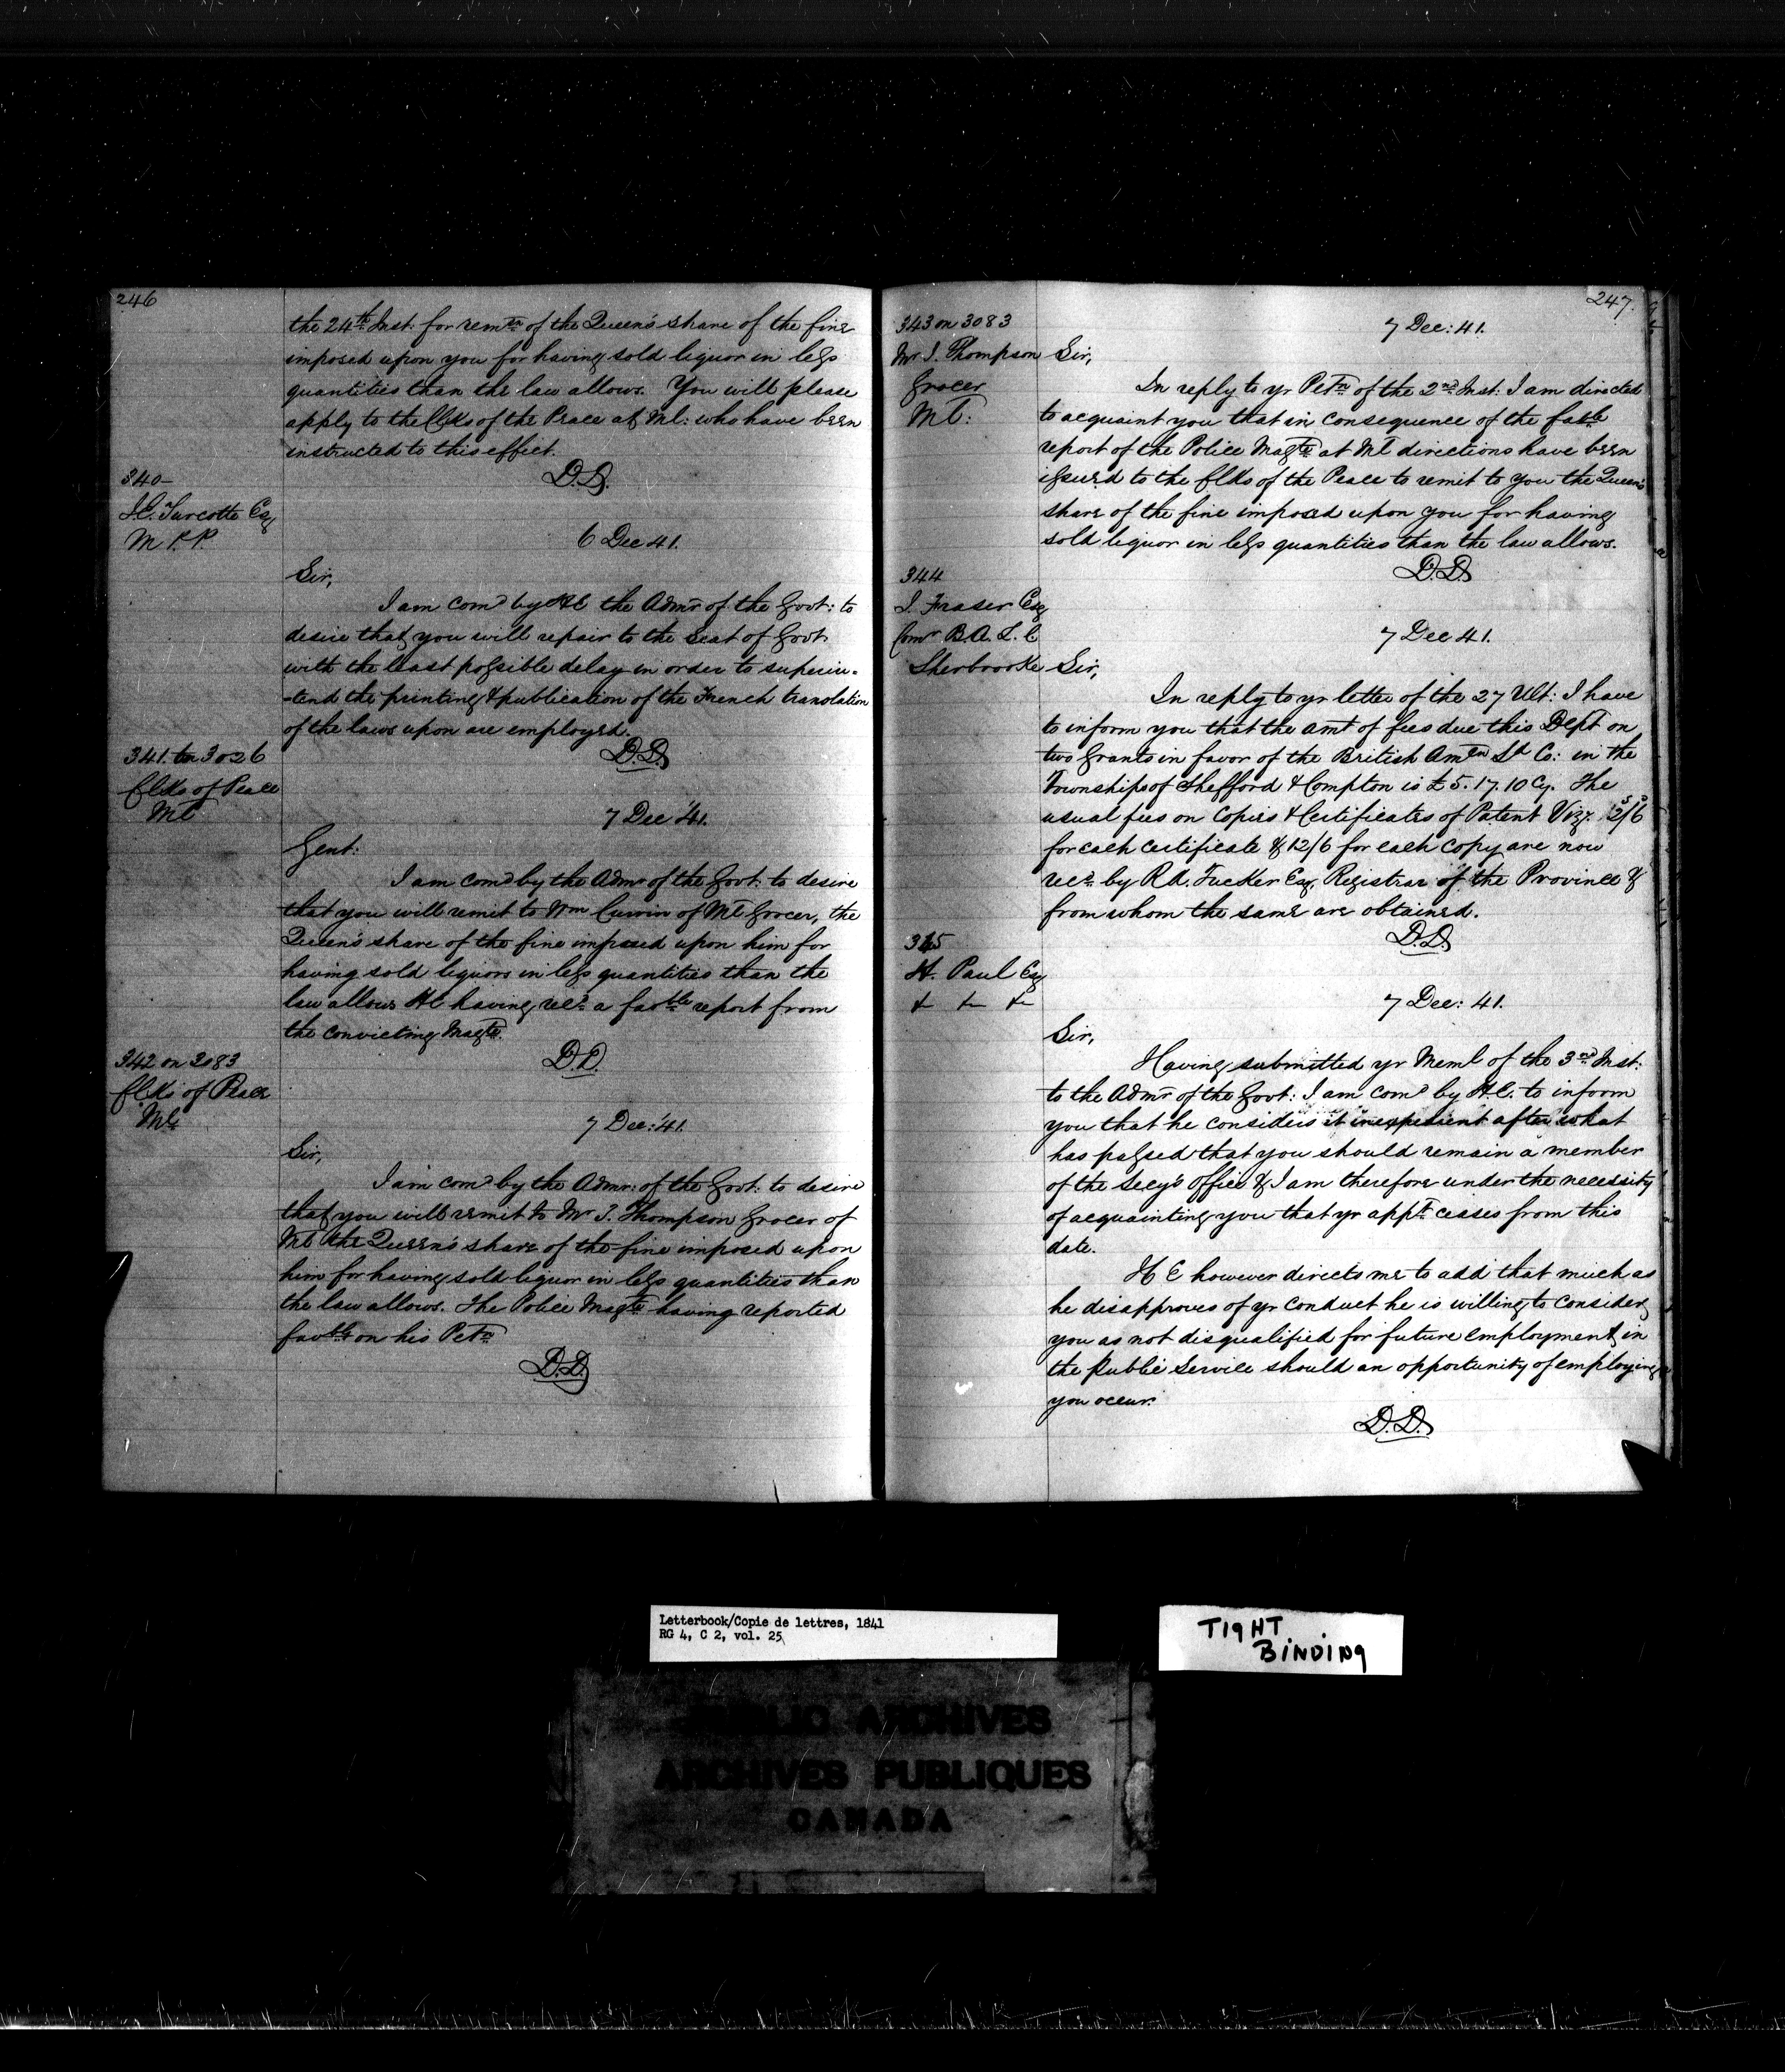 246
the 24th Inst: for remon of the Queen's share of the fine
imposed upon you for having sold liquor in less
quantities than the law allows. You will please
apply to the Clks of the Peace at Ml: who have been
instructed to this effect.
D.D.
340-
J.E. Turcotte Esq
M P.P.
6 Dec 41.
Sir,
I am comd by HE the Admr of the Govt: to
desire that you will repair to the Seat of Govt
with the least possible delay in order to superin-
-tend the printing & publication of the French translation
of the laws upon are employed.
D.D.
341 on 3026
Clks of Peace
Ml
7 Dec '41.
Gent:
I am comd by the Admr of the Govt: to desire
that you will remit to Wm Curwin of Ml Grocer, the
Queen's share of the fine imposed upon him for
having sold liquors in less quantities than the
law allows HE having recd a favble report from
the convicting Magte.
D.D.
342 on 3083
Clks of Peace
Ml:
7 Dec: '41.
Sir,
I am comd by the Admr: of the Govt: to desire
that you will remit to Mr J. Thompson Grocer of
Ml the Queen's share of the fine imposed upon
him for having sold liquor in less quantities than
the law allows. The Police Magte having reported
favble on his Petn
D.D.
247.
343 on 3083
Mr J. Thompson
Grocer
Ml:
7 Dec: 41.
Sir,
In reply to yr Petn of the 2nd Inst: I am directed
to acquaint you that in consequence of the favble
report of the Police Magte at Ml directions have been
issued to the Clks of the Peace to remit to you the Queen's
share of the fine imposed upon you for having
sold liquor in less quantities than the law allows.
D.D.
344
J. Fraser Esq
Comr B.A. L. C
Sherbrooke
7 Dec 41.
Sir,
In reply to yr letter of the 27 Ult: I have
to inform you that the amt of fees due this Dept on
two Grants in favor of the British Amen Ld Co: in the
Townships of Shefford & Compton is £5.17.10 Cy. The
usual fees on Copies & Certificates of Patent Vizt. 2/6
for each certificate & 12/6 for each copy are now
recd by R.A. Tucker Esq. Registrar of the Province &
from whom the same are obtained.
D.D.
345
H. Paul Esq
& & &
7 Dec: 41.
Sir,
Having submitted yr Meml of the 3rd Inst:
to the Admr of the Govt: I am comd by H.E. to inform
you that he considers it inexpedient after what
has passed that you should remain a member
of the Secy's Office & I am therefore under the necessity
of acquainting you that yr appt ceases from this
date.
H E however directs me to add that much as
he disapproves of yr conduct he is willing to consider
you as not disqualified for future employment in
the Public Service should an opportunity of employing
you occur.
D.D.
Letterbook/Copie de lettres, 1841
RG 4, C 2, vol. 25
TIGHT
BINDING
PUBLIC ARCHIVES
ARCHIVES PUBLIQUES
CANADA